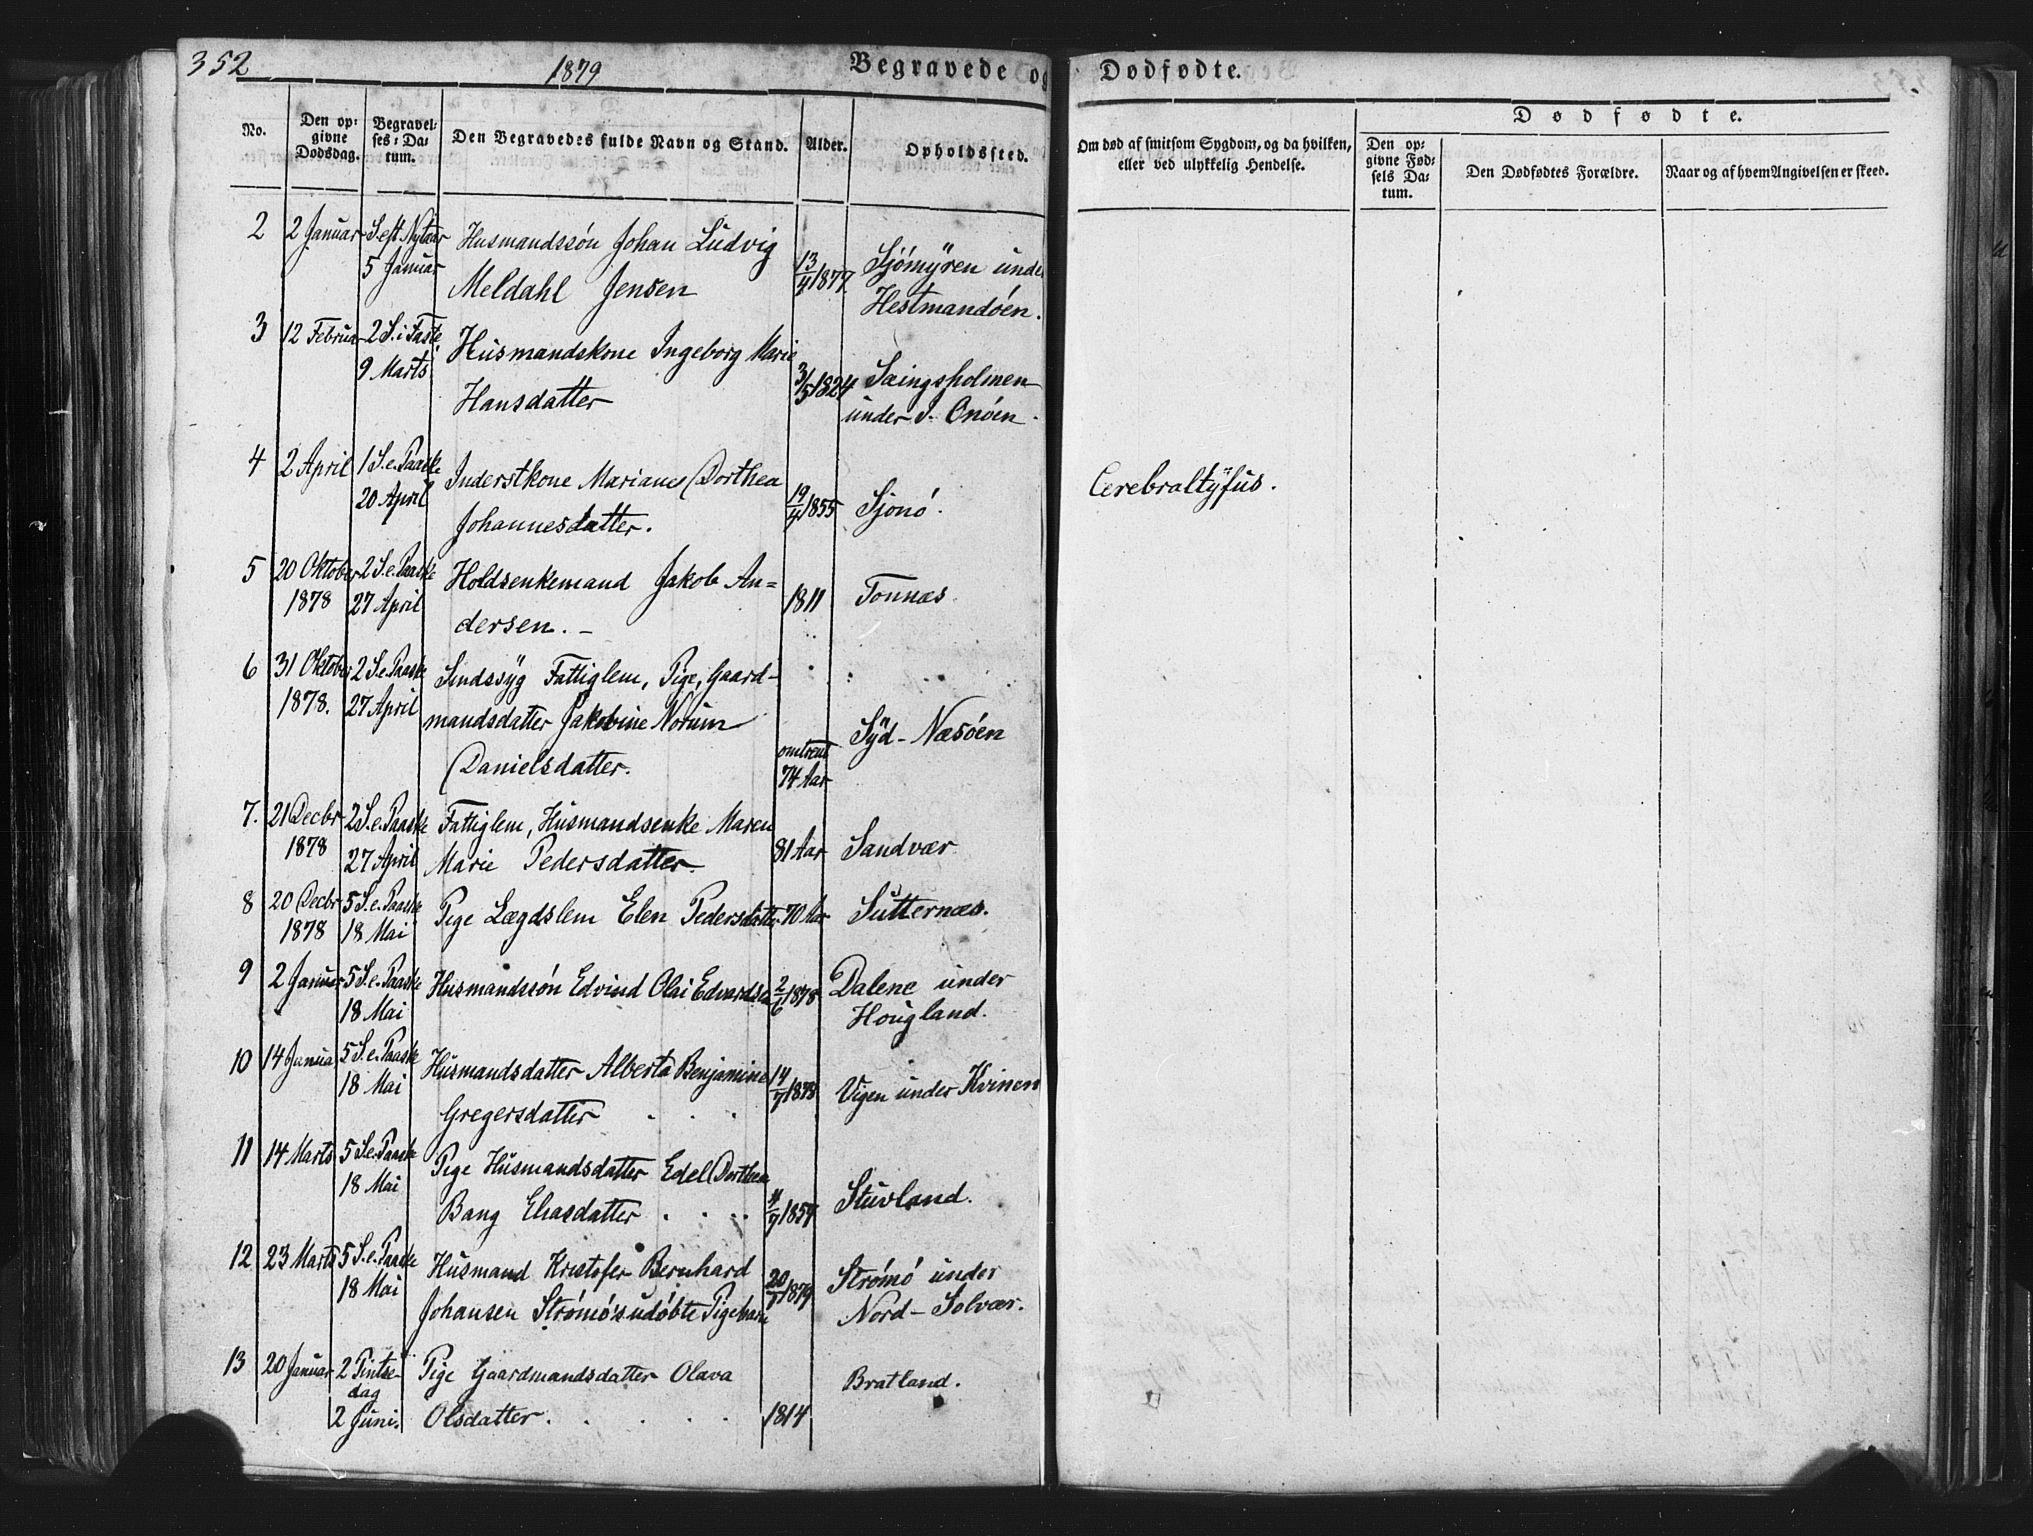 352
1879
Begravede og Dødfødte.
No.
Den op-
givne
Dødsdag.
Begravel-
ses-Da-
tum.
Den Begravedes fulde Navn og Stand.
Alder.
Opholdssted.
Om død af smitsom Sygdom, og da hvilken,
eller ved ulykkelig Hendelse.
Dødfødte.
Den op-
givne Fød-
sels Da-
tum.
Den Dødfødtes Forældre.
Naar og af hvem Angivelsen er skeed.
2 2 Januar S. eft. Nytaar Husmandssön Johan Ludvig
5 Januar Meldahl Jensen 13/4 1877. Sjömyren under
Hestmandöen.
3 12 Februar 2 S. i Faste Husmandskone Ingeborg Marie
9 Marts Hansdatter 3/5 1824 Sæingsholmen
under S. Onöen.
4 2 April 1 S. e. Paaske Inderstkone Marianes Dorthea
20 April Johannesdatter. 19/4 1855 Sjonö. Cerebraltyfus.
5 20 Oktober 2 S. e. Paaske Holdsenkemand Jakob An-
1878 27 April dersen. 1811 Tonnæs
6 31 Oktober 2 S. e. Paaske Sindssyg Fattiglem, Pige, Gaard-
1878. 27 April mandsdatter Jakobine Norum
Danielsdatter. omtrent
74 Aar Syd-Næsöen
7. 21 Decbr 2 S. e. Paaske Fattiglem, Husmandsenke Maren
1878 27 April Marie Pedersdatter. 81 Aar Sandvær
8 20 Decbr 5 S. e. Paaske Pige Lægdslem Elen Pedersdatter 70 Aar Sutternæs.
1878 18 Mai
9 2 Januar 5 S. e. Paaske Husmandssön Edvind Olai Edvardsen 2/6 1878 Dalene under
18 Mai Hougland.
10 14 Januar 5 S. e. Paaske Husmandsdatter Alberta Benjamine
18 Mai Gregersdatter 14/7 1878 Vigen under Kvinen
11 14 Marts 5 S. e. Paaske Pige Husmandsdatter Edel Dorthea
18 Mai Bang Eliasdatter 1857 Stuvland.
12 23 Marts 5 S. e. Paaske Husmand Kristofer Bernhard
18 Mai Johansen Strömö's udöbte Pigebarn 1879 Strömö under
Nord-Solvær.
13 20 Januar 2 Pintse- Pige Gaardmandsdatter Olava Bratland.
dag
2 Juni. Olsdatter. 1814